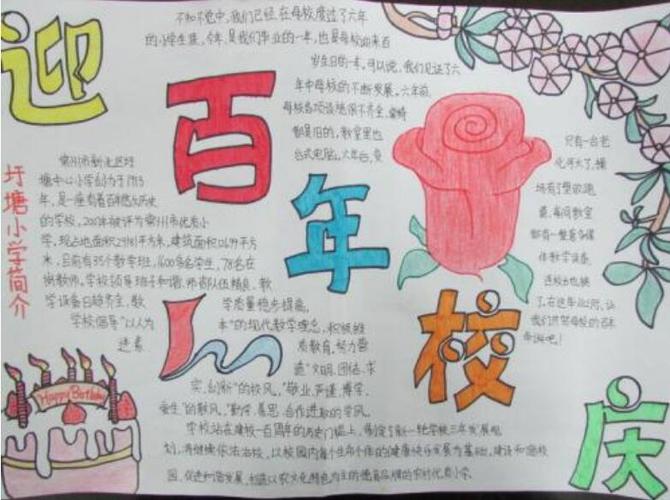 迎
百
年
校
庆
不知不觉中,我们已经在母校度过了六年
的小学生涯,今年,是我们毕业的一年,也是母校迎来百
岁生日的一年,可以说,我们见证了六
年中母校的不断发展。六年前,
母校各项设施很不齐全,桌椅
都是旧的,教室里也
只有一台老
台式电脑。六年后,
操
场有了塑胶跑
道,每间教室
都有一整套多媒
体教学设备,
让
我们共贺母校的百年
华诞吧!
圩塘小学简介
常州市新北区圩
塘中心小学创办于1913
年,是一座有着百年悠久历史
的学校,
学,现占地面积29481平方米,建筑面积
米,目前有35个教学班,1600多名学生,78名在
岗教师。学校领导班子和谐,师资队伍精良,教
学设备日趋齐全,教
学质量稳步提高。
学校倡导“以人为
本”的现代教学理念,积极推
进素
质教育,努力营
造“文明、团结、求
实、创新”的校风,“敬业、严谨、博学、
爱生”的教风,“勤学、善思、合作进取的学风。
学校站在建校一百周年的历史门槛上,制定了新一轮学校三年发展规
划,将继续依法治校,以校园内每个生命个体的健康快乐发展为基础,建设和谐校
园,促进和谐发展,
Happy Birthday